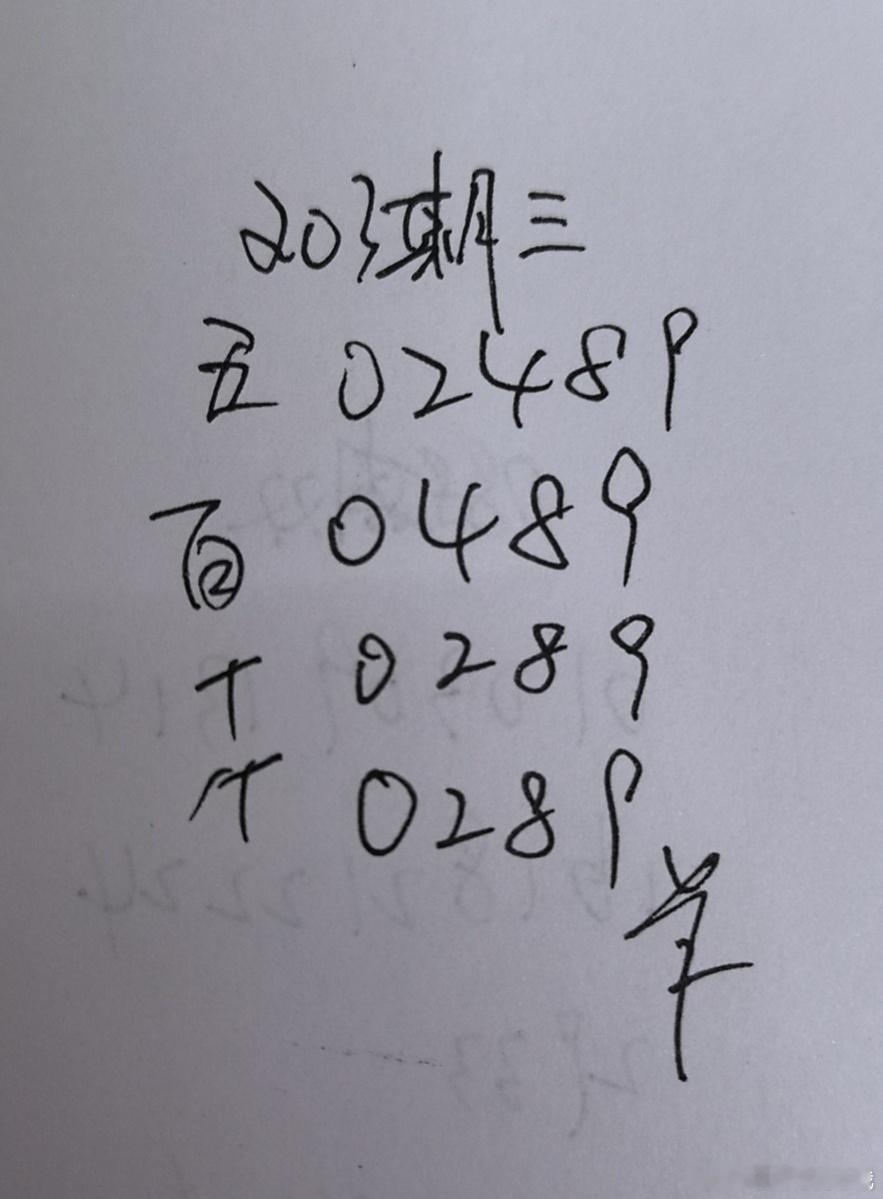 203期三
五 02489
百 0489
十 0289
个 0289